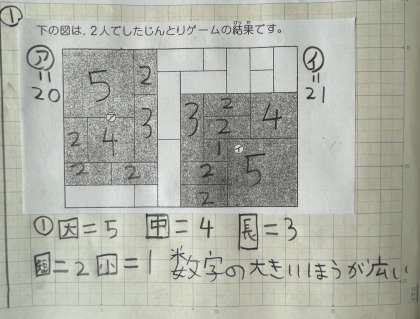 ①
下の図は、2人でしたじんとりゲームの結果です。
ア
=
20
イ
=
21
5 2
3
2 4
2 2
3 2 4
2
1 イ
2 5
2
① 大=5 中=4 長=3
短=2 小=1 ※数字の大きいほうが広い